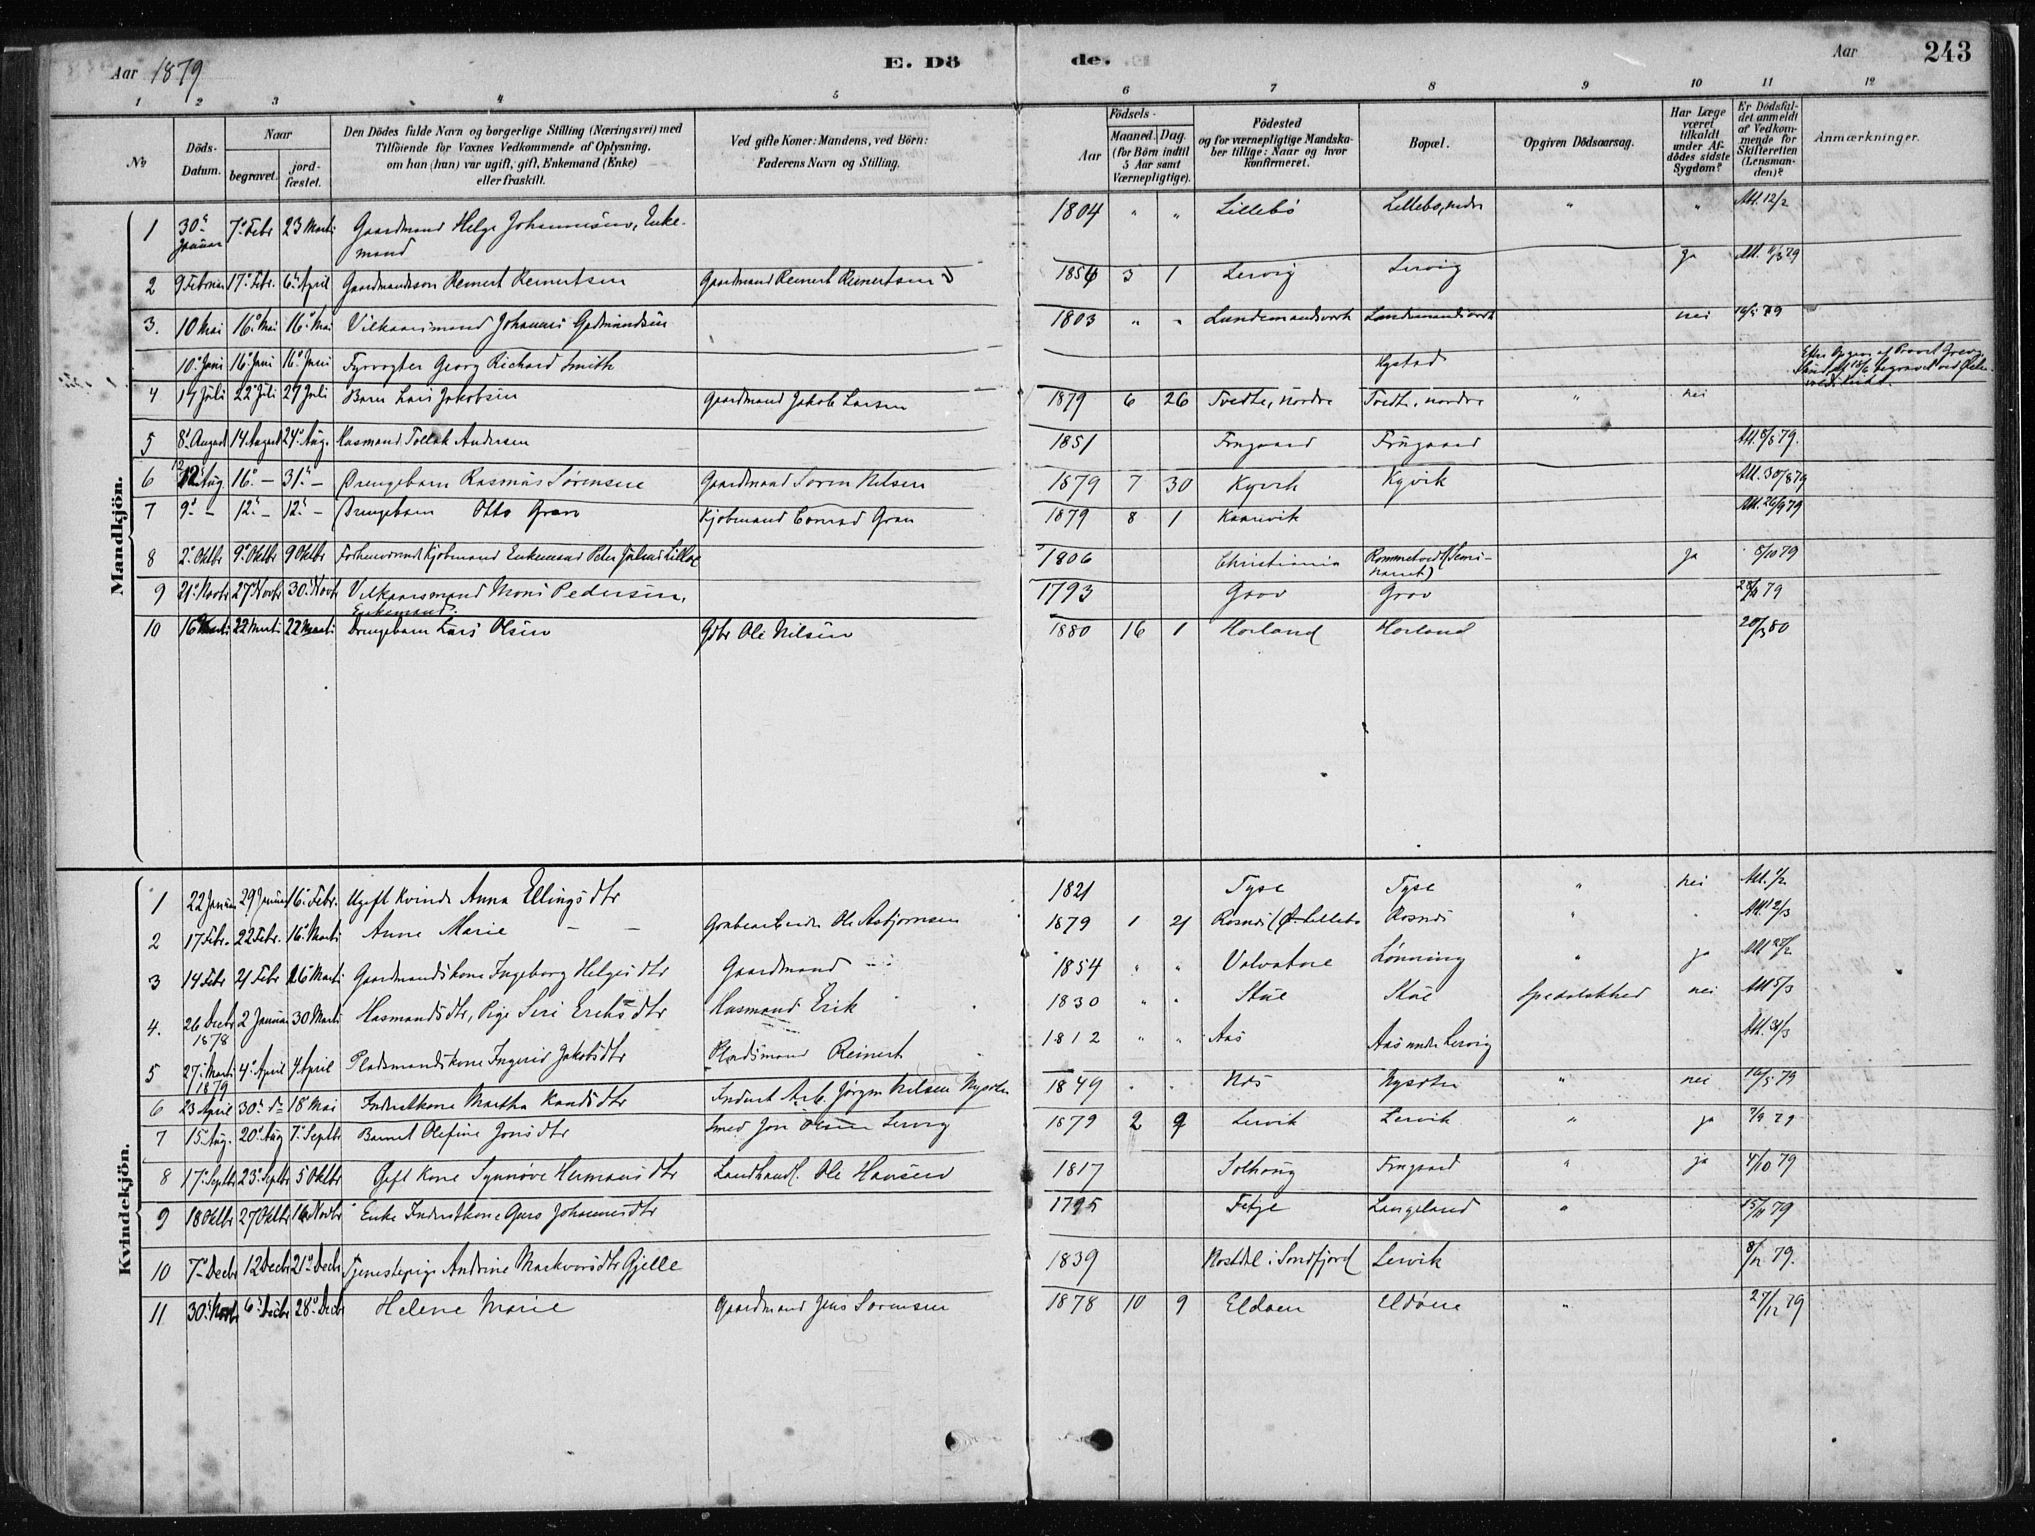 Aar 1879 E. Dö de. Aar 243
1 2 3 4 5 6 7 8 9 10 11 12
No. Döds-Datum. Naar begravet. jordfæstet. Den Dödes fulde Navn og borgerlige Stilling (Næringsvei) med Tilföiende for Voxnes Vedkommende af Oplysning, om han (hun) var ugift, gift, Enkemand (Enke) eller fraskilt. Ved gifte Koner: Mandens, ved Börn: Faderens Navn og Stilling. Födsels- Aar Maaned. Dag. (for Börn indtil 5 Aar samt Værnepligtige). Födested og for værnepligtige Mandskaber tillige: Naar og hvor konfirmeret. Bopæl. Opgiven Dödsaarsag. Har Læge været tilkaldt under Afdödes sidste Sygdom? Er Dödsfaldet anmeldt af Vedkommende for Skifteretten (Lensmanden)? Anmærkninger.
Mandkjön.
1 30 Januar 7 Febr 23 Marti Gaardmand Helge Johannesen, Enkemand 1804 " " Lillebö Lillebö, nedre " " Att. 12/2
2 9 Februar 17 Febr. 6 April Gaardmandssön Reinert Reinertsen Gaardmand Reinert Reinertsen 1856 3 1 Lervig Lervig ja Att. 4/3 79
3. 10 Mai 16 Mai 16 Mai Vilkaarsmand Johannes Gudmundsen 1803 " " Lundemandsverk Lundemandsverk nei 16/5 79
10 Juni 16 Juni 16 Juni Fyrvogter Georg Richard Smith Hystad
4 14 Juli 22 Juli 27 Juli Barn Lars Jakobsen Gaardmand Jakob Larsen 1879 6 26 Tvedte, nordre Tvedte, nordre " nei
5 8 August 14 August 24 Aug. Husmand Tollak Andersen 1851 Frugaard Frugaard Att. 8/8 79.
6 12 Aug 16 – 31 – Drengebarn Rasmus Sørensen Gaardmand Søren Nilsen 1879 7 30 Kyvik Kyvik Att. 30/8 79
7 9 – 12 – 12 – Drengebarn Otto Gran Kjöbmand Conrad Gran 1879 8 1 Kaarevik Att. 26/9 79
8 2 Oktbr 9 Oktbr 9 Oktbr Forhenværende Kjöbmand Enkemand Peter Julius Lilloe 1806 Christiania Rommetvedt (Seminariet) ja 8/10 79
9 21 Novbr 27 Novbr 30 Novbr Vilkaarsmand Mons Pedersen, Enkemand. 1793 Grov Grov 79
10 16 Marti 22 Marti 22 Marti Drengebarn Lars Olsen Gdbr Ole Nilsen 1880 16 1 Horland Horland 20/3 80
Kvindekjön.
1 22 Januar 29 Januar 16 Febr. Ugift Kvinde Anna Ellingsdtr 1821 Tyse Tyse " nei Att. 1/2
2 17 Febr. 22 Febr. 16 Marti Anne Marie – – Grubearbeider Ole Asbjørnsen 1879 1 21 Rosnes (Ø. Lillebø Rosnes " Att. 12/3
3 14 Febr 21 Febr 26 Marti Gaardmandskone Ingeborg Helgesdtr Gaardmand 1854 " " Valvatne Lønning " ja Att 25/2
4. 26 Decbr 1878 2 Januar 30 Marti Husmandsdtr, Pige Siri Eriksdtr Husmand Erik 1830 " " Stue Stue Spedalskhed nei Att 5/3
5 27 Marti 1879 4 April 4 April Pladsmandskone Ingerid Jakobsdtr Pladsmand Reinert 1812 " " Aas Aas under Lervig Att. 31/3
6 23 April 30 d 18 Mai Inderstkone Martha Knudsdtr Inderst Arb. Jörgen Nilsen Nysæter 1849 Nes Nysæter " nei 16/5 79
7 15 Aug. 20 Aug 7 Septbr Barnet Olefine Jonsdtr Smed Jon Olsen Lervig 1879 2 9 Lervik Lervik " ja 7/9 79
8 17 Septbr 23 Septbr 5 Oktbr Gift Kone Synnöve Hermansdtr Landhandl. Ole Hansen 1817 Solhoug Frugaard " ja 4/10 79
9 18 Oktbr 27 Oktbr 16 Novbr Enke Inderstkone Guro Johannesdtr 1795 Fitje Langeland " 15/11 79
10 7 Decbr 12 Decbr 21 Decbr Tjenestepige Andrine Markvorsdtr Gjelle 1839 Nostdal i Sondfjord Lervik 8/12 79.
11 30 Novbr 6 Decbr 28 Decbr Helene Marie Gaardmand Jens Sørensen 1878 10 9 Eldøen Eldøen " 27/12 79